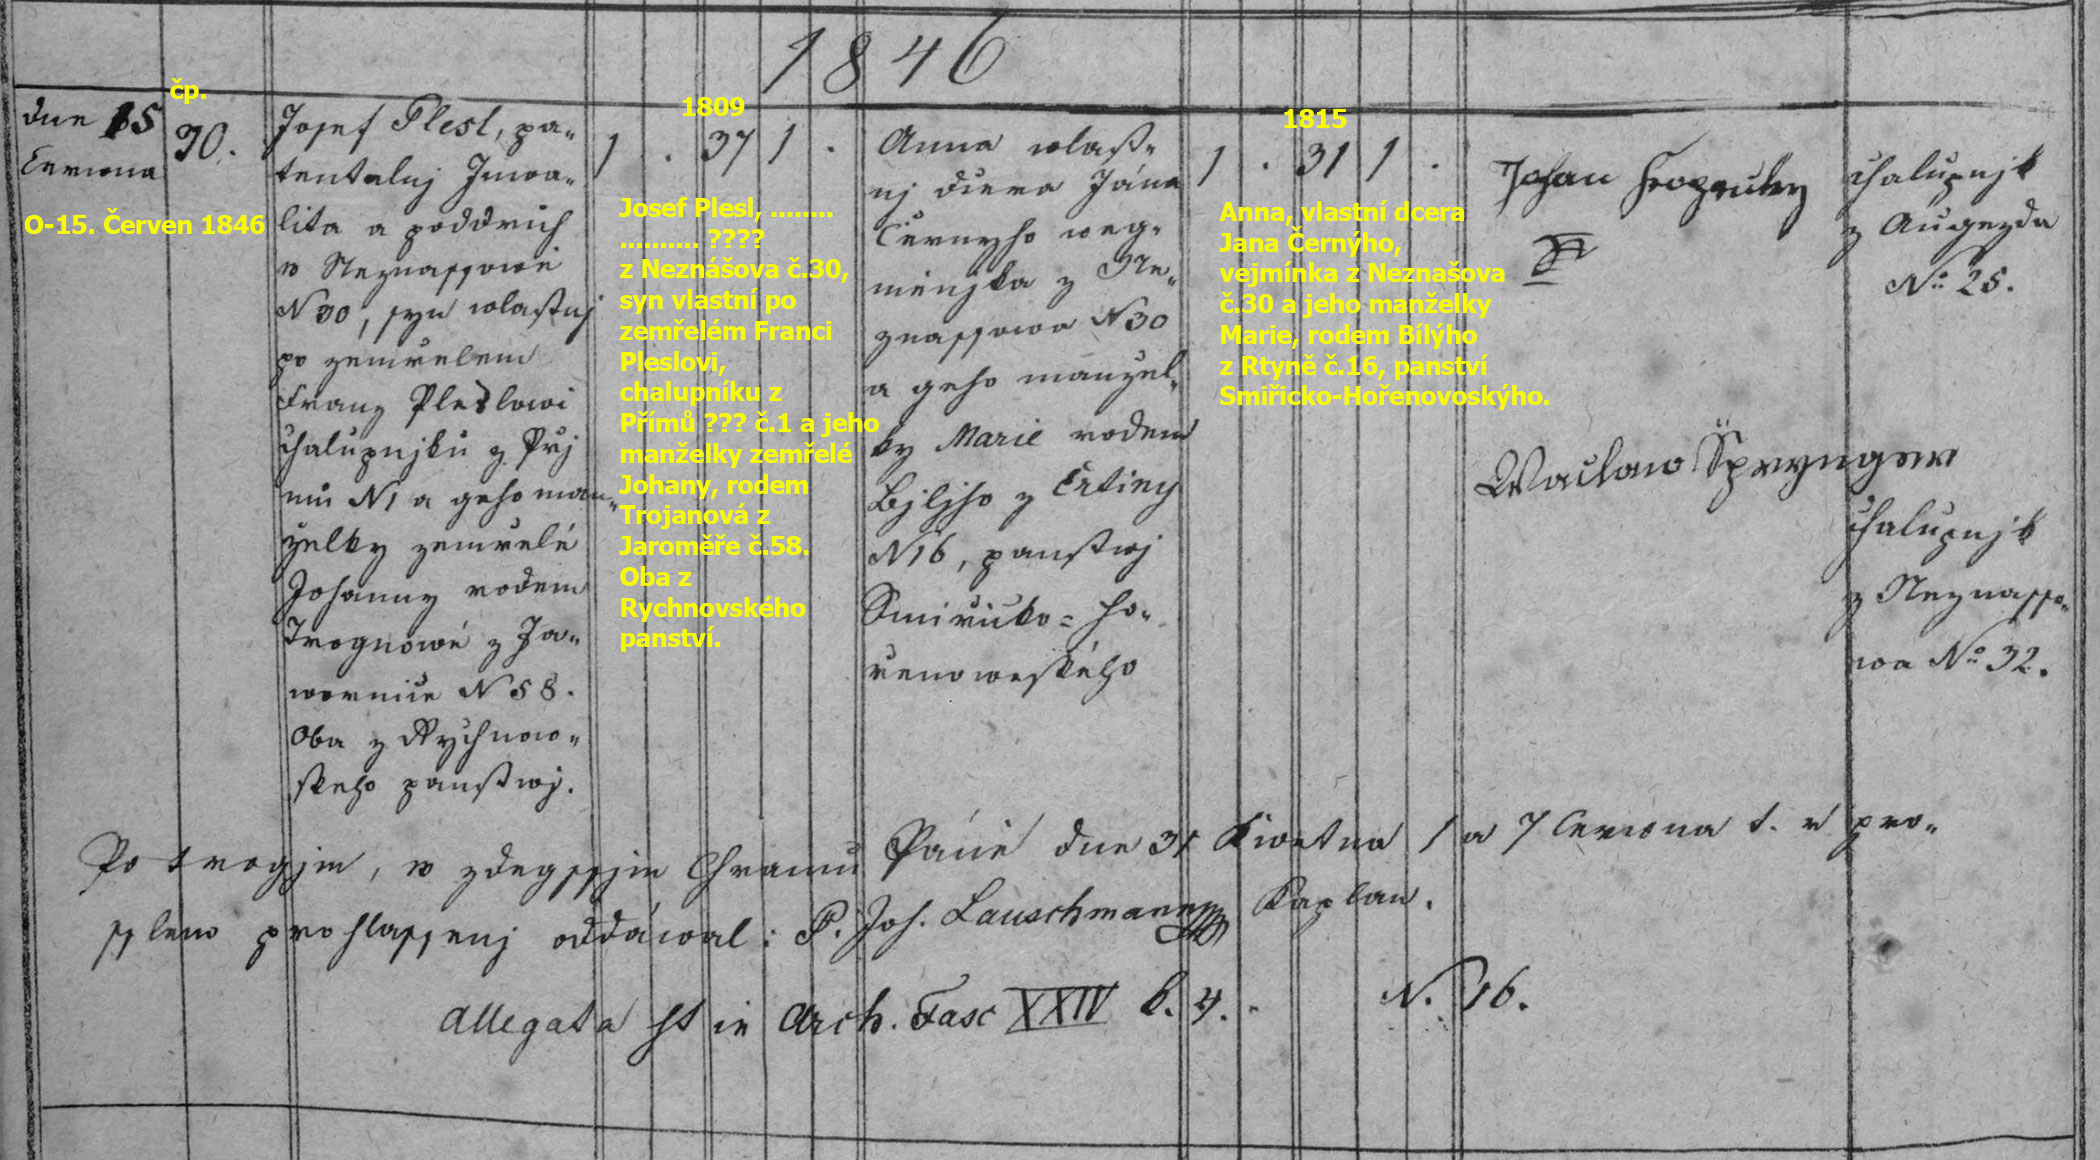 1846
čp.
dne 15
Cerwna
30.
O-15. Červen 1846
Josef Plesl, pa„
tentalnj Inwa„
lita a poddruh
w Neznassowě
N 30, syn wlastnj
po zemřelem
Franz Pleslowi
chalupnjku z Přj
mu N1 a geho man„
želky zemřelé
Johanny rodem
Trognowé z Ja„
wornice N 58.
Oba z Rychnow„
skeho panstwj.
1809
1 . 37 1 .
Josef Plesl, ........
.......... ????
z Neznášova č.30,
syn vlastní po
zemřelém Franci
Pleslovi,
chalupníku z
Přímů ??? č.1 a jeho
manželky zemřelé
Johany, rodem
Trojanová z
Jaroměře č.58.
Oba z
Rychnovského
panství.
Anna wlast„
nj dcera Jána
Černyho weg„
měnjka z Ne„
znassowa N 30
a geho manžel„
ky Marie rodem
Bjljho z Ertiny
N16, panstwj
Smiřicko = Ho„
řenoweského
1815
1 . 31 1 .
Anna, vlastní dcera
Jana Černýho,
vejmínka z Neznašova
č.30 a jeho manželky
Marie, rodem Bílýho
z Rtyně č.16, panství
Smiřicko-Hořenovoskýho.
Johan
chalupnjk
z Augezda
No 25.
Waclaw Špryngar
chalupnjk
z Neznasso„
wa No 32.
Po trogjm, w zdegssjm Chramu Páně dne 31 Kwetna / a 7 Cerwna t. r pro„
sslem prohlassenj oddáwal: P. Joh. Lauschmann Kaplan.
Allegata st in Arch. Fasc XXIV b. 4. N. 16.